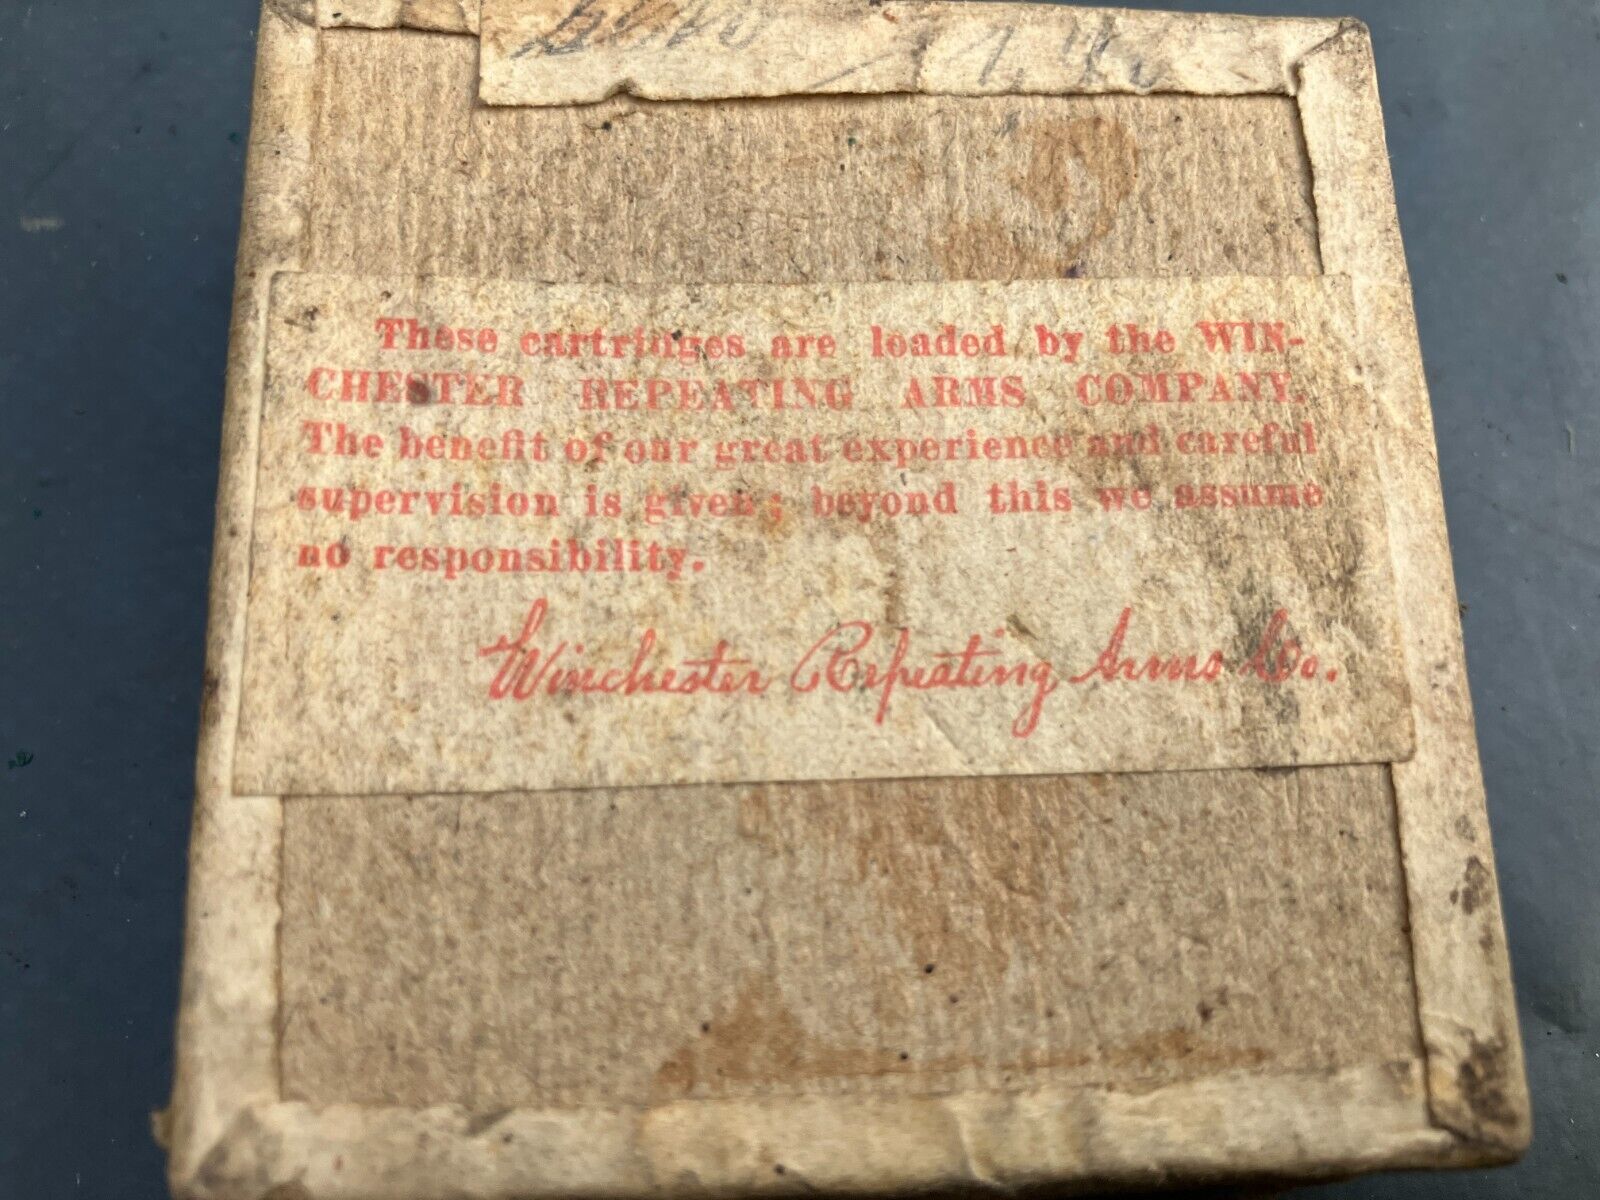 These cartridges are loaded by the WIN-
CHESTER REPEATING ARMS COMPANY.
The benefit of our great experience and careful
supervision is given; beyond this we assume
no responsibility.
Winchester Repeating Arms Co.